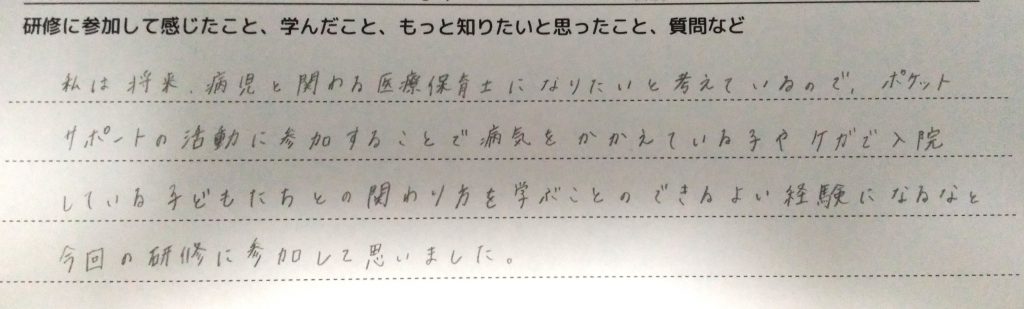 研修に参加して感じたこと、学んだこと、もっと知りたいと思ったこと、質問など
私は将来、病児と関わる医療保育士になりたいと考えているので、ポケット
サポートの活動に参加することで病気をかかえている子やケガで入院
している子どもたちとの関わり方を学ぶことのできるよい経験になるなと
今回の研修に参加して思いました。